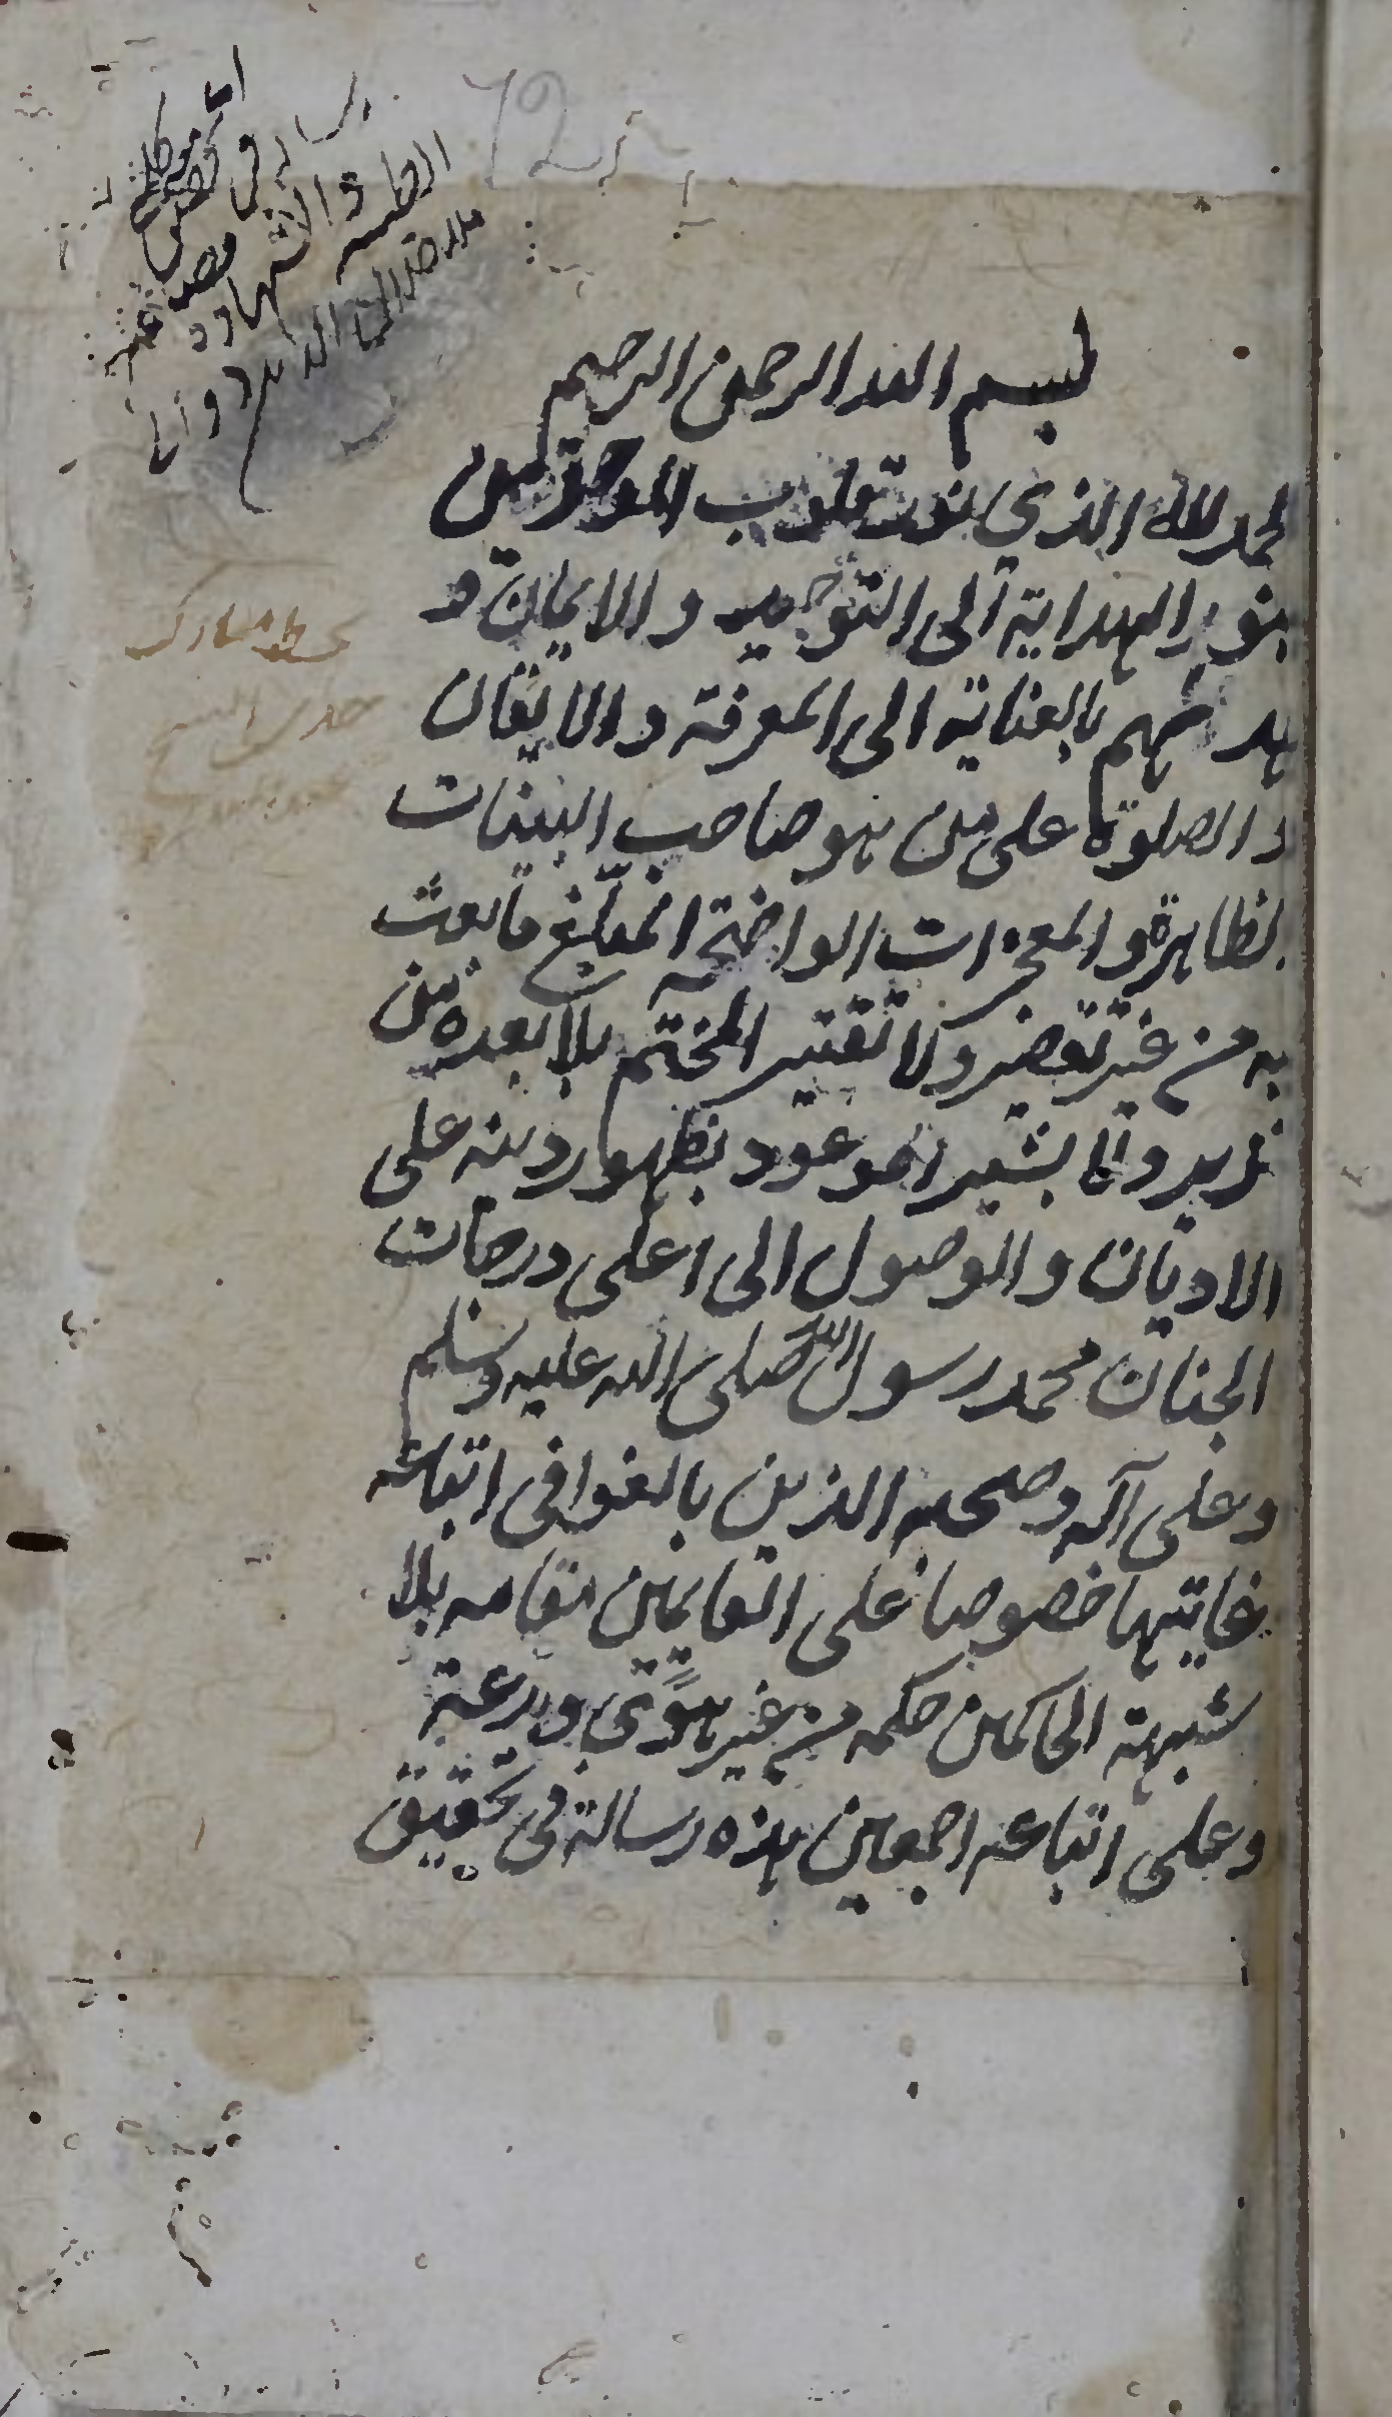 بسم الله الرحمن الرحيم
الحمد لله الذي نور قلوب الموحدين
بنور الهداية الى التوحيد والايمان و
هداهم بالعناية الى المعرفة والايقان
والصلوة على من هو صاحب البينات
الظاهرة والمعجزات الواضحة المبلغ ما بعث
به من غير تقصير ولا تقتير المختم بلا بعده من
نذير ولا بشير الموعود بظهور دينه على
الاديان والوصول الى اعلى درجات
الجنان محمد رسول الله صلى الله عليه وسلم
وعلى آله وصحبه الذين بالغوا فى اتباعه
غايتها خصوصا على القايمين مقامه بلا
شبهة الحاكمين حكمه من غير هوًى وبدعة
وعلى اتباعه اجمعين هذه رسالة فى تحقيق
72
بخط مبارك